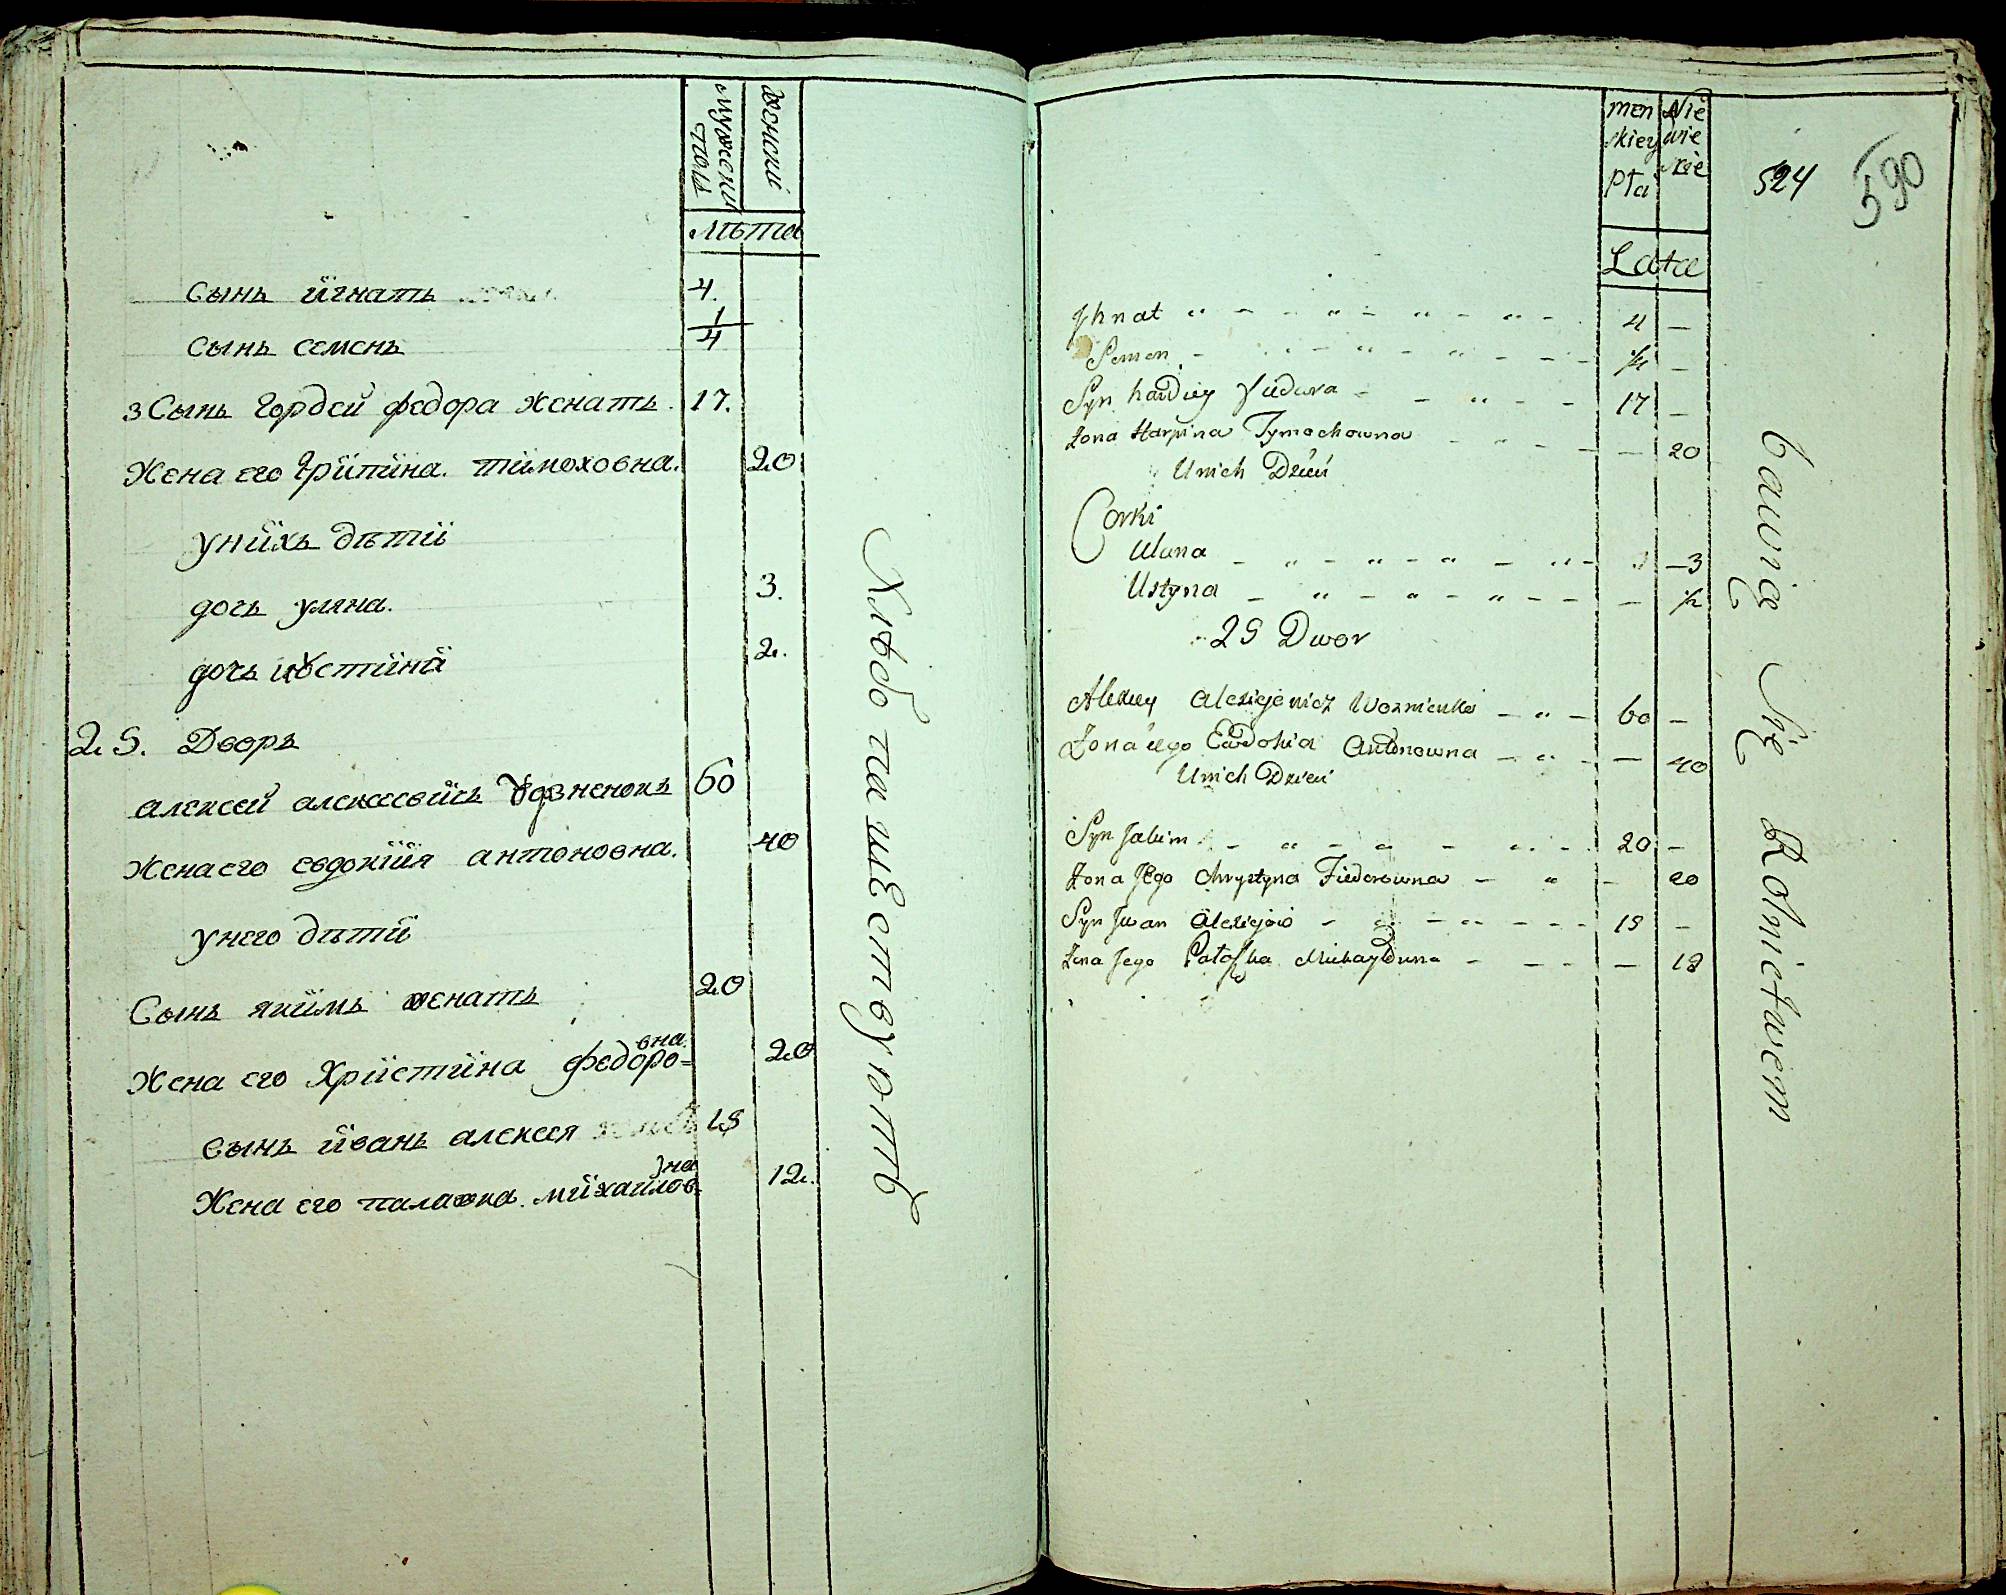 мужески
пола
женски
лѣта
сынъ игнатъ 4.
сынъ семенъ 1/4
3 Сынъ Гордей федора женатъ. 17.
Жена его Грипина. тимоховна. 20
у нихъ дѣти
дочь уляна. 3.
дочь иустина 2.
25. Дворъ
алексей алексеевичъ 60
Жена его евдокия антоновна. 40
у него дѣти
Сынъ якимъ женатъ 20
Жена его Христина федоровна. 20
сынъ иванъ алексея 15
Жена его палажка. михаиловна 12.
Хлѣбопашествуютъ
men
skiey
Pła
Nie
wie
skie
524
590
Lata
Jhnat 4 —
Semen 1/4 —
Syn hardiey Fiedura 17 —
Zona Harpina Tymochowna — 20
U nich Dzieci
Corki
Ulana —3
Ustyna — 1/2
25 Dwor
Alexiey Alexiejewicz Woznienko 60 —
Zona iego Ewdokia Antonowna — 40
U nich Dzieci
Syn Jakim 20 —
Zona Jego Chrystyna Fiedorowna — 20
Syn Jwan Alexiejow 15 —
Zona Jego Połaszka — 12
bawią Się Rolnictwem